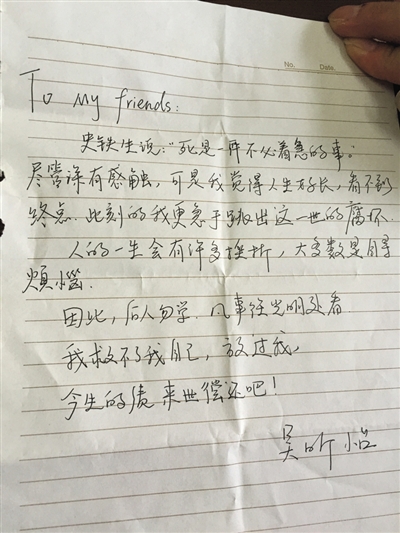 No. Date.
To My friends:
史铁生说:"死是一件不必着急的事。
尽管深有感触,可是我觉得人生好长,看不到
终点.此刻的我更急于跳出这一世的腐坏.
人的一生会有许多挫折,大多数是自寻
烦惱.
因此,后人勿学.凡事往光明处看.
我救不了我自己,放过我,
今生的债来世偿还吧!
吴昕怡